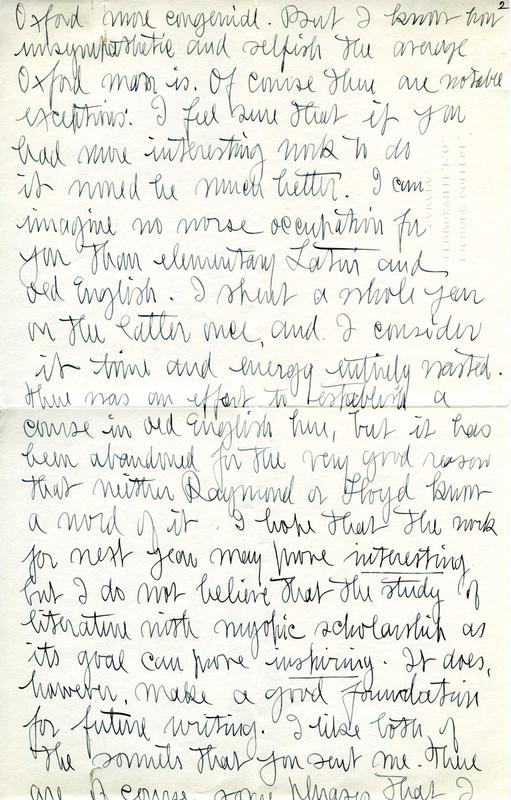 2
Oxford more congenial. But I know how
unsympathetic and selfish the average
Oxford man is. Of course there are notable
exceptions. I feel sure that if you
had more interesting work to do
it would be much better. I can
imagine no worse occupation for
you than elementary Latin and
old English. I spent a whole year
on the latter once, and I consider
it time and energy entirely wasted.
There was an effort to establish a
course in old English here, but it has
been abandoned for the very good reason
that neither Raymond or Lloyd know
a word of it. I hope that the work
for next year may prove interesting
but I do not believe that the study of
literature with myopic scholarship as
its goal can prove inspiring. It does,
however, make a good foundation
for future writing. I like both of
the sonnets that you sent me. There
are of course some phrases that I